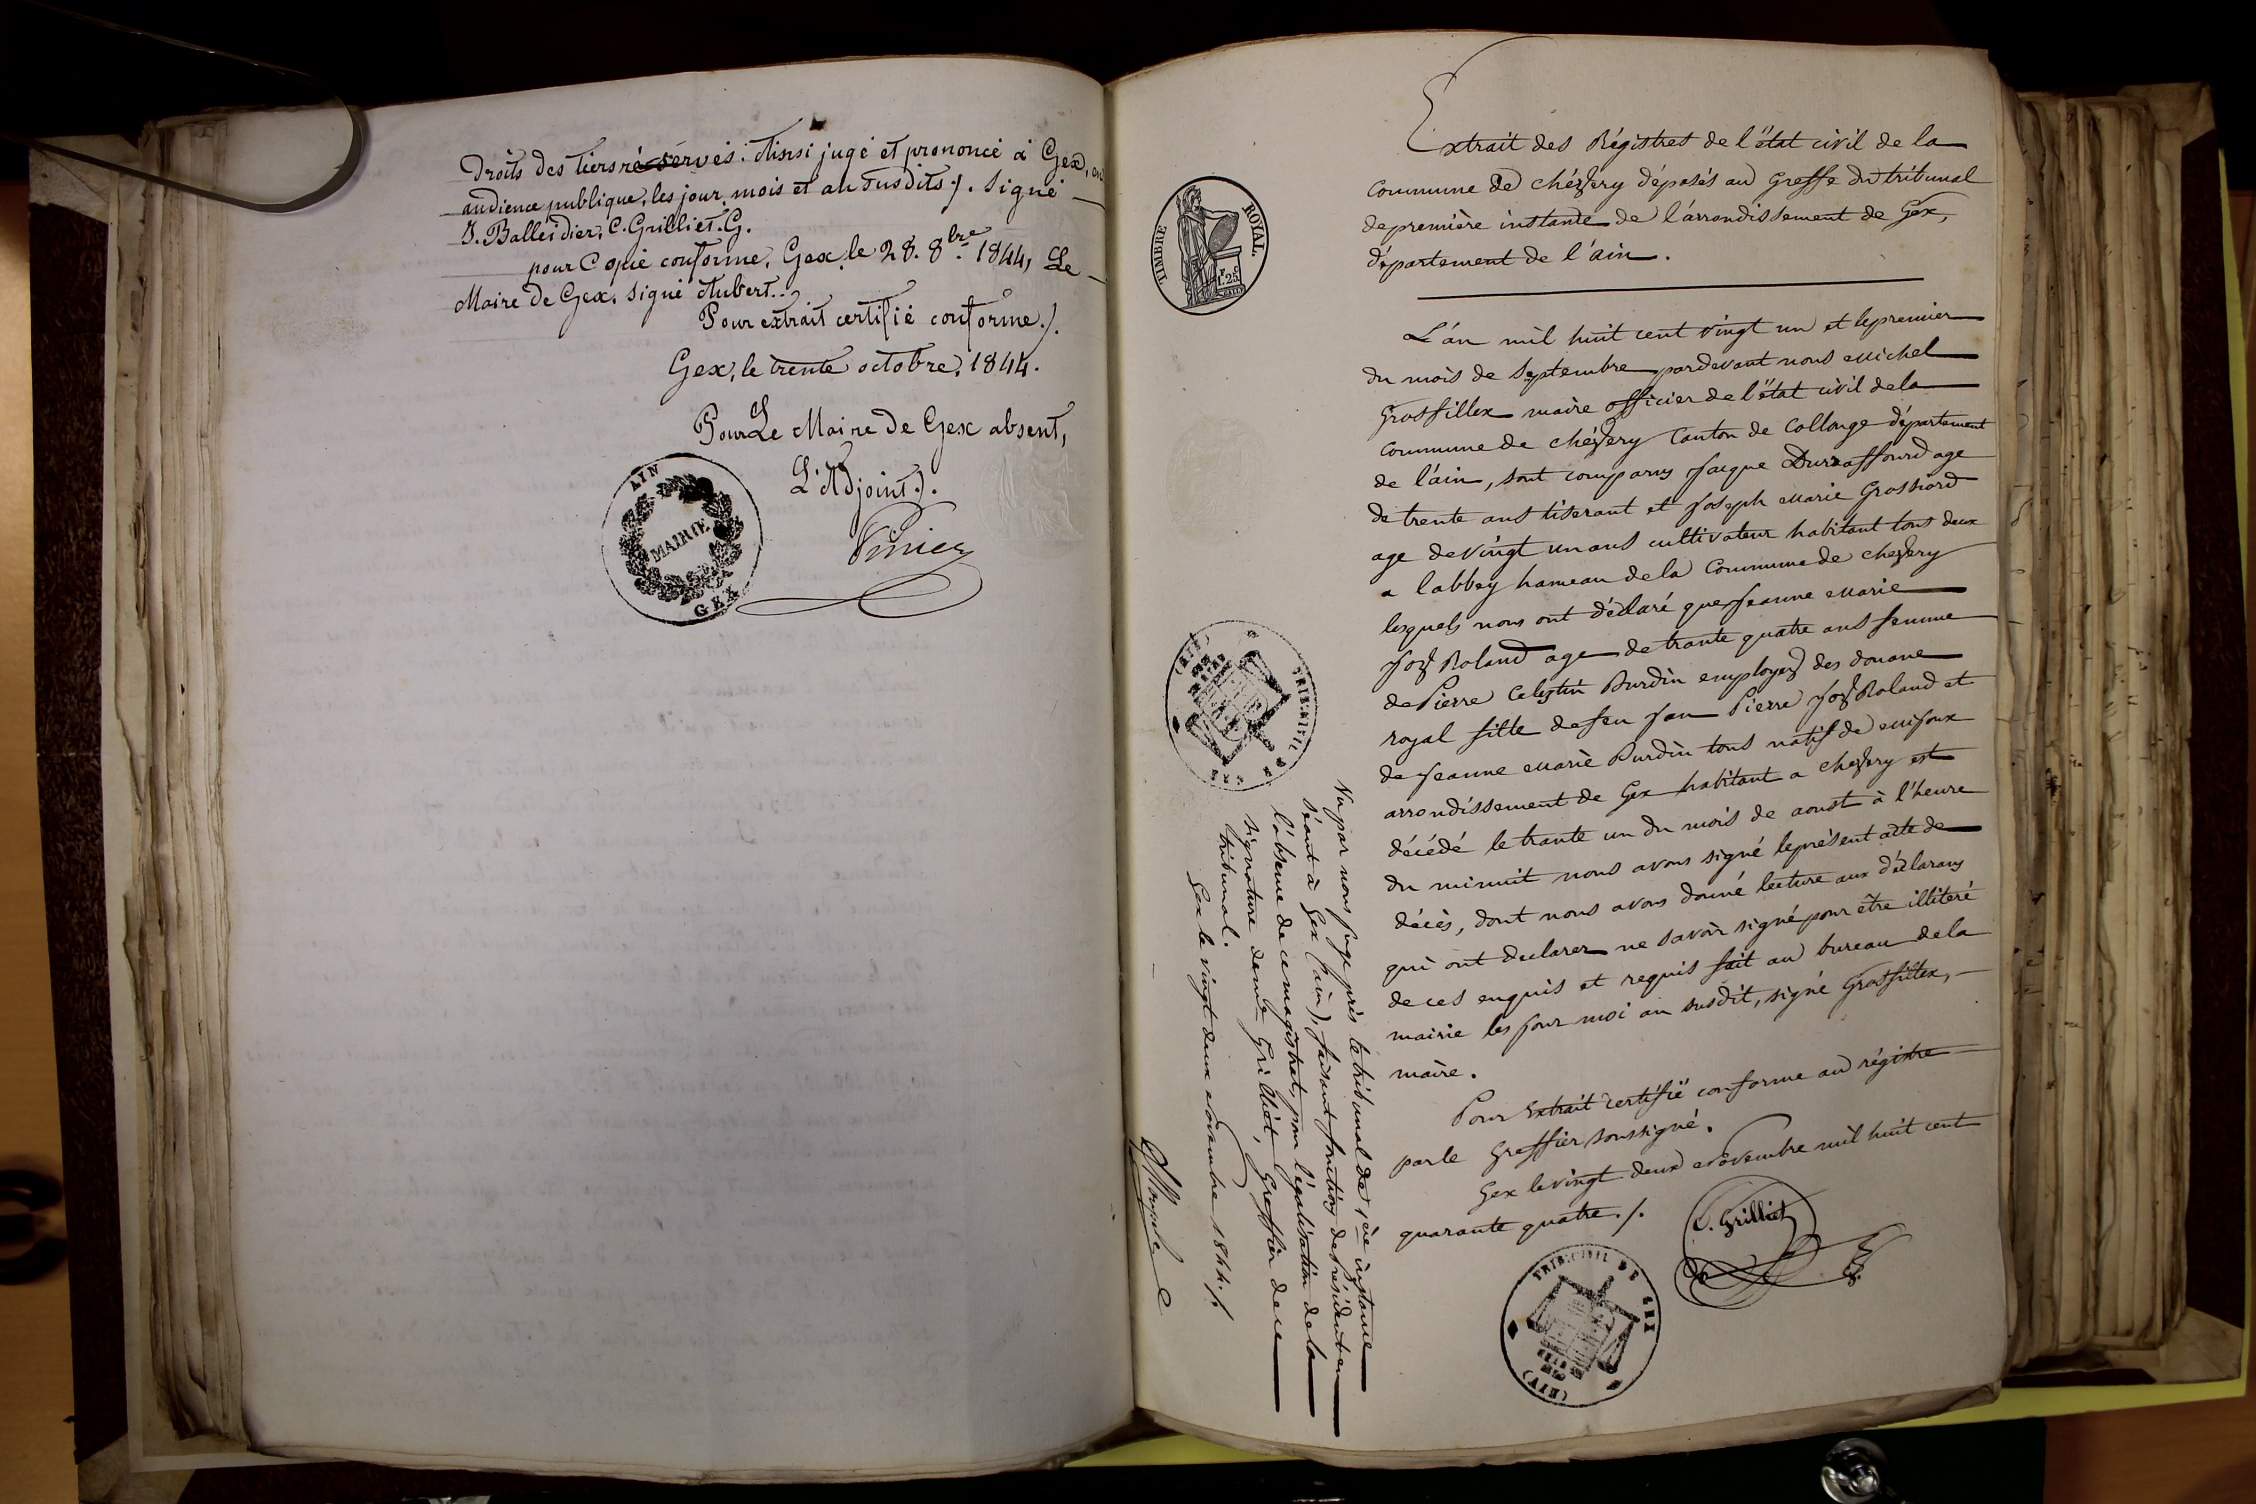 droits des tiers réservés. Ainsi jugé et prononcé à Gex, en
audience publique, les jour, mois et an susdits ./. Signé
J. Balleidier, C. Grilliet. G.
pour Copie conforme, Gex, le 28. 8bre. 1844, Le
Maire de Gex, signé Aubert..
Pour extrait certifié conforme ./.
Gex, le trente octobre, 1844.
Pour Le Maire de Gex absent,
L'Adjoint ./.
AIN
MAIRIE
GEX
Extrait des Régistres de l'état civil de la
commune de chézery déposés au Greffe du tribunal
de première instante de l'arrondissement de Gex,
département de l'ain.
TIMBRE ROYAL
1 F. 25 C
L'án mil huit cent vingt un et le premier
du mois de septembre pardevant nous Michel
Grosfillex maire officier de l'état civil de la
commune de chézery Canton de Collonge département
de l'ain, sont comparus Jacque Duraffourd age
de trente ans tiserant et Joseph Marie Grossiord
age de vingt un ans cultivateur habitant tous deux
a labbey hameau de la Commune de chezery
lesquels nous ont déclaré que Jeanne Marie
Joz Roland age de trante quatre ans femme
de Pierre Celestin Burdin employez des douane
royal fille de feu Jan Pierre Joz Roland et
de Jeanne Marie Burdin tous natif de Mijoux
arrondissement de Gex habitant a chezery est
décédé le trante un du mois de aoust à l'heure
du minuit nous avons signé le présent acte de
décès, dont nous avons donné lecture aux déclarans
qui ont declarer ne savoir signé pour être illiteré
de ces enquis et requis fait au bureau de la
mairie les jour moi an susdit, signé Grosfillex,
maire.
Pour Extrait certifié conforme au régistre
par le Greffier soussigné.
Gex le vingt deux Novembre mil huit cent
quarante quatre ./.
C. Grilliet
TRIB. CIVIL DE GEX
(AIN)
TRIB. CIVIL
GEX
(AIN)
Vu par nous Juge près le tribunal de 1ère instance
séant à Gex (ain), faisant fonction de président en
l'absence de ce magistrat, pour légalisation de la
signature de Me Grilliet, Greffier de ce
tribunal.
Gex le vingt deux Novembre 1844 ./.